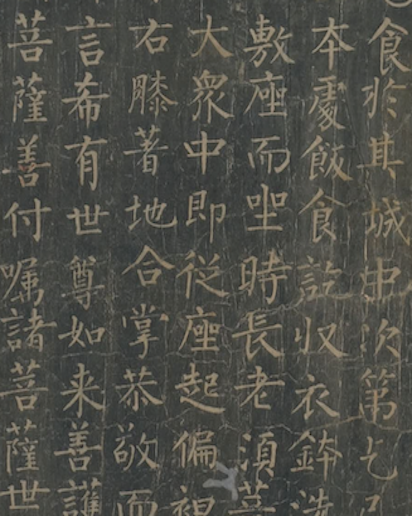 食於其城中次第乞
本處飯食訖収衣鉢洗
敷座而坐時長老須菩
大衆中即從座起偏袒
右膝著地合掌恭敬而
言希有世尊如来善護
菩薩善付囑諸菩薩世